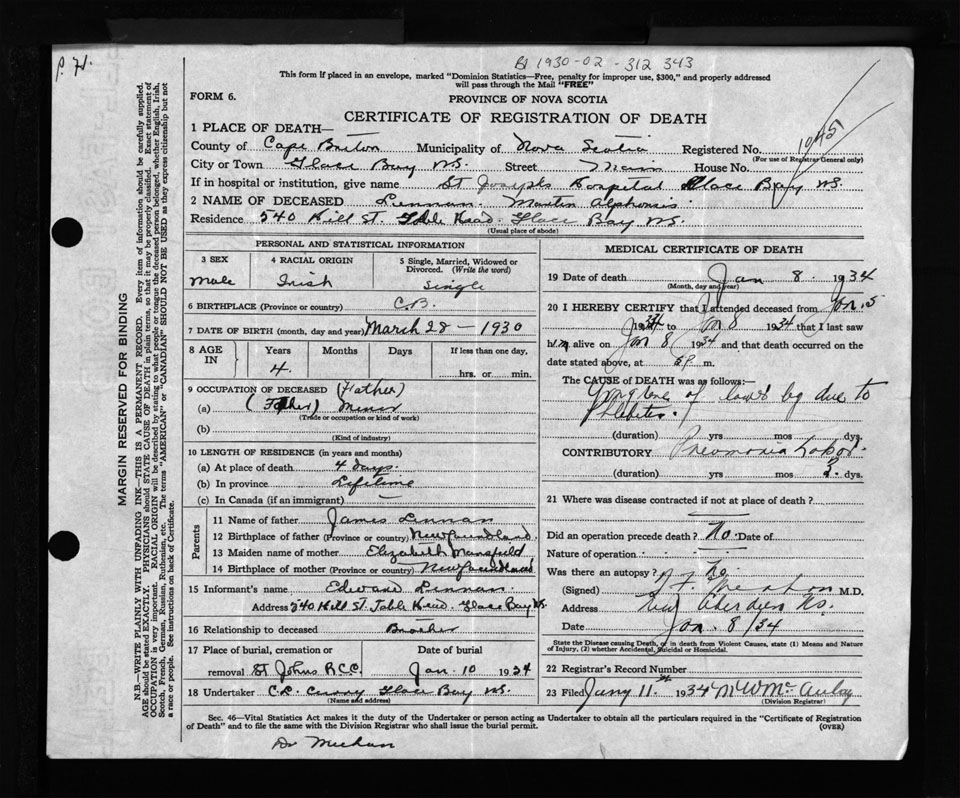 P. H.
B 1930-02-312 343
This form if placed in an envelope, marked "Dominion Statistics—Free, penalty for improper use, $300," and properly addressed
will pass through the Mail "FREE"
FORM 6.
PROVINCE OF NOVA SCOTIA
CERTIFICATE OF REGISTRATION OF DEATH
1 PLACE OF DEATH—
County of Cape Breton Municipality of Nova Scotia Registered No.
(For use of Registrar General only)
City or Town Glace Bay N.S. Street Main House No.
If in hospital or institution, give name St Josephs Hospital Glace Bay N.S.
2 NAME OF DECEASED Lennan Martin Alphonsis
Residence 540 Hill St. Table Head. Glace Bay N.S.
(Usual place of abode)
MARGIN RESERVED FOR BINDING
N.B.—WRITE PLAINLY WITH UNFADING INK—THIS IS A PERMANENT RECORD. Every item of information should be carefully supplied.
AGE should be stated EXACTLY. PHYSICIANS should STATE CAUSE OF DEATH in plain terms, so that it may be properly classified. Exact statement of
OCCUPATION is very important. RACIAL ORIGIN will be described by stating to what people or tongue the deceased person belonged, whether English, Irish,
Scotch, French, German, Russian, Ruthenian, etc. The terms "AMERICAN" or "CANADIAN" SHOULD NOT BE USED as they express citizenship but not
a race or people. See instructions on back of Certificate.
PERSONAL AND STATISTICAL INFORMATION
3 SEX
Male
4 RACIAL ORIGIN
Irish
5 Single, Married, Widowed or
Divorced. (Write the word)
Single
6 BIRTHPLACE (Province or country) C.B.
7 DATE OF BIRTH (month, day and year) March 28 — 1930
8 AGE
IN
Years
4.
Months
Days
If less than one day,
hrs. or min.
9 OCCUPATION OF DECEASED (Father)
(a) (Father) Miner
(Trade or occupation or kind of work)
(b)
(Kind of industry)
10 LENGTH OF RESIDENCE (in years and months)
(a) At place of death 4 days.
(b) In province Lifetime
(c) In Canada (if an immigrant) —
Parents
11 Name of father James Lennan
12 Birthplace of father (Province or country) Newfoundland.
13 Maiden name of mother Elizabeth Mansfield
14 Birthplace of mother (Province or country) Newfoundland
15 Informant's name Edward Lennan
Address 540 Hill St. Table Head. Glace Bay N.S.
16 Relationship to deceased Brother
17 Place of burial, cremation or
removal St Johns R.C.C.
Date of burial
Jan. 10 1934
18 Undertaker C.L. Curry Glace Bay N.S.
(Name and address)
MEDICAL CERTIFICATE OF DEATH
19 Date of death Jan 8. 1934
(Month, day and year)
20 I HEREBY CERTIFY that I attended deceased from Jan. 5
1934 to Jan 8 1934 that I last saw
him alive on Jan 8 1934 and that death occurred on the
date stated above, at 6 P. m.
The CAUSE OF DEATH was as follows:—
Gangrene of lower leg due to
Phlebitis.
(duration) yrs mos dys.
CONTRIBUTORY Pneumonia Lobar.
(duration) yrs. mos. 3. dys.
21 Where was disease contracted if not at place of death?
Did an operation precede death? No. Date of
Nature of operation
Was there an autopsy? No.
(Signed) Meehan M.D.
Address New Aberdeen N.S.
Date Jan. 8/34
State the Disease causing Death, or in death from Violent Causes, state (1) Means and Nature
of Injury, (2) whether Accidental, Suicidal or Homicidal.
22 Registrar's Record Number
23 Filed Jany 11th 1934 M W McAulay
(Division Registrar)
Sec. 46—Vital Statistics Act makes it the duty of the Undertaker or person acting as Undertaker to obtain all the particulars required in the "Certificate of Registration
of Death" and to file the same with the Division Registrar who shall issue the burial permit.
(OVER)
Dr Meehan